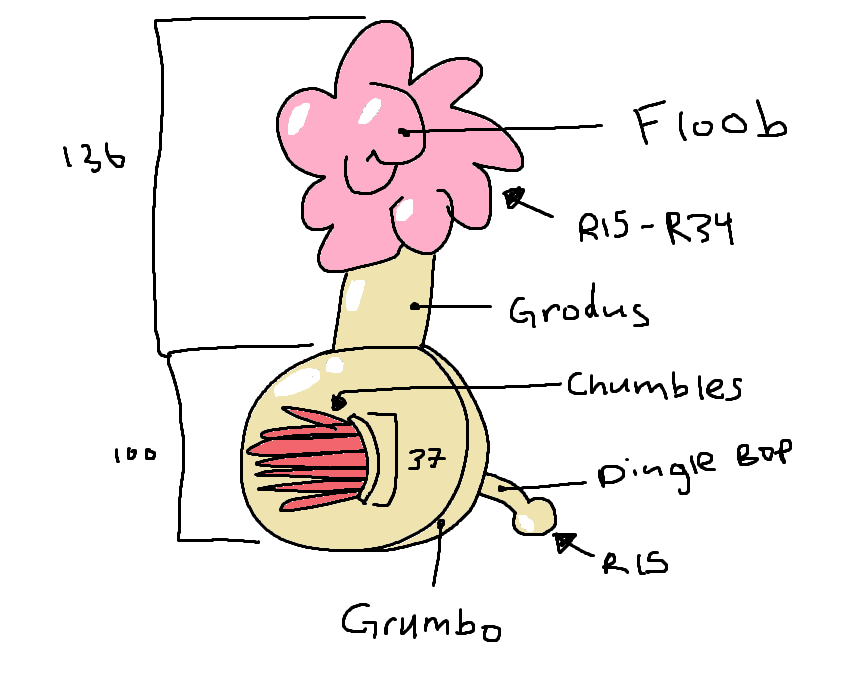 Floob
136
R15-R34
Grodus
Chumbles
100
37
Dingle Bop
R15
Grumbo